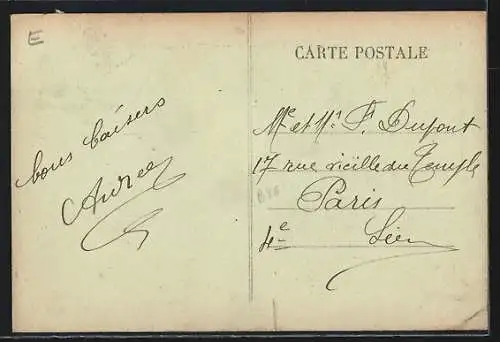 E
CARTE POSTALE
bons baisers
Andrée
Me et Mr F. Dupont
17 rue vieille du Temple
Paris
4e